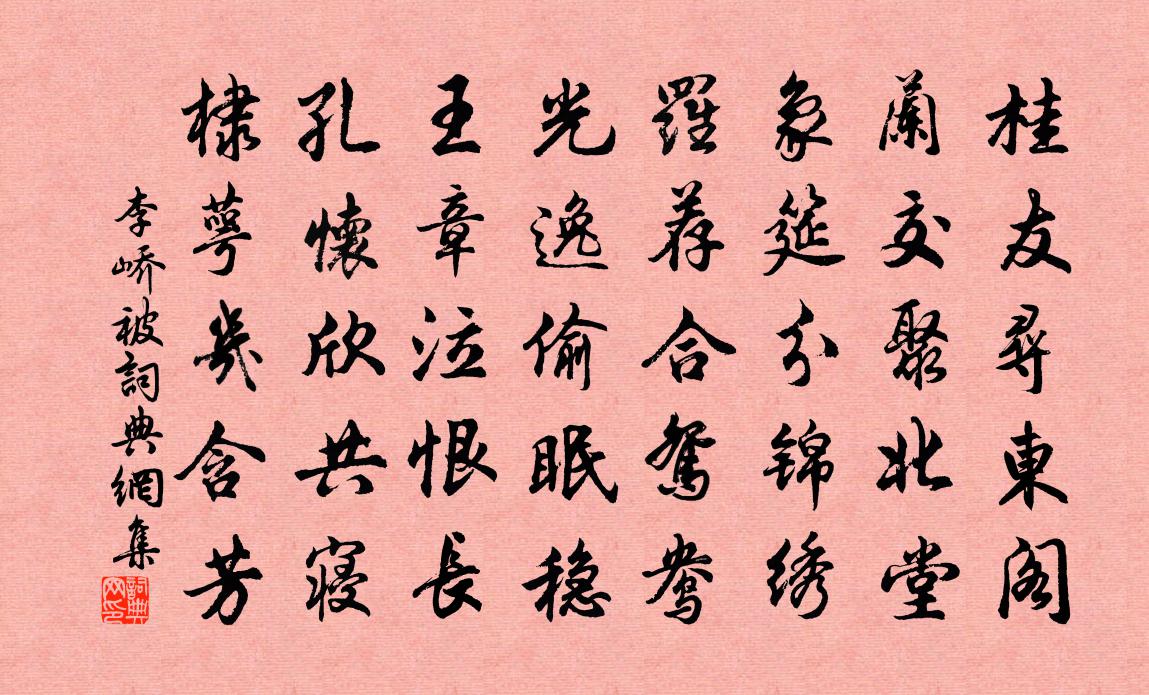 桂友尋東閣
蘭交聚北堂
象筵分锦绣
羅荐合鴛鴦
光逸偷眠稳
王章泣恨長
孔懷欣共寝
棣萼幾含芳
李嶠被詞典網集
詞典網印